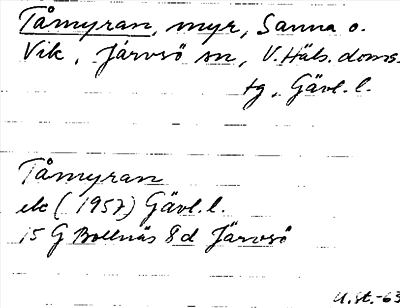 Tåmyran, myr, Sanna o.
Vik, Järvsö sn, V. Häls. doms.
tg, Gävl. l.
Tåmyran
ek (1957) Gävl. l.
15 G Bollnäs 8d Järvsö
U.St.-63